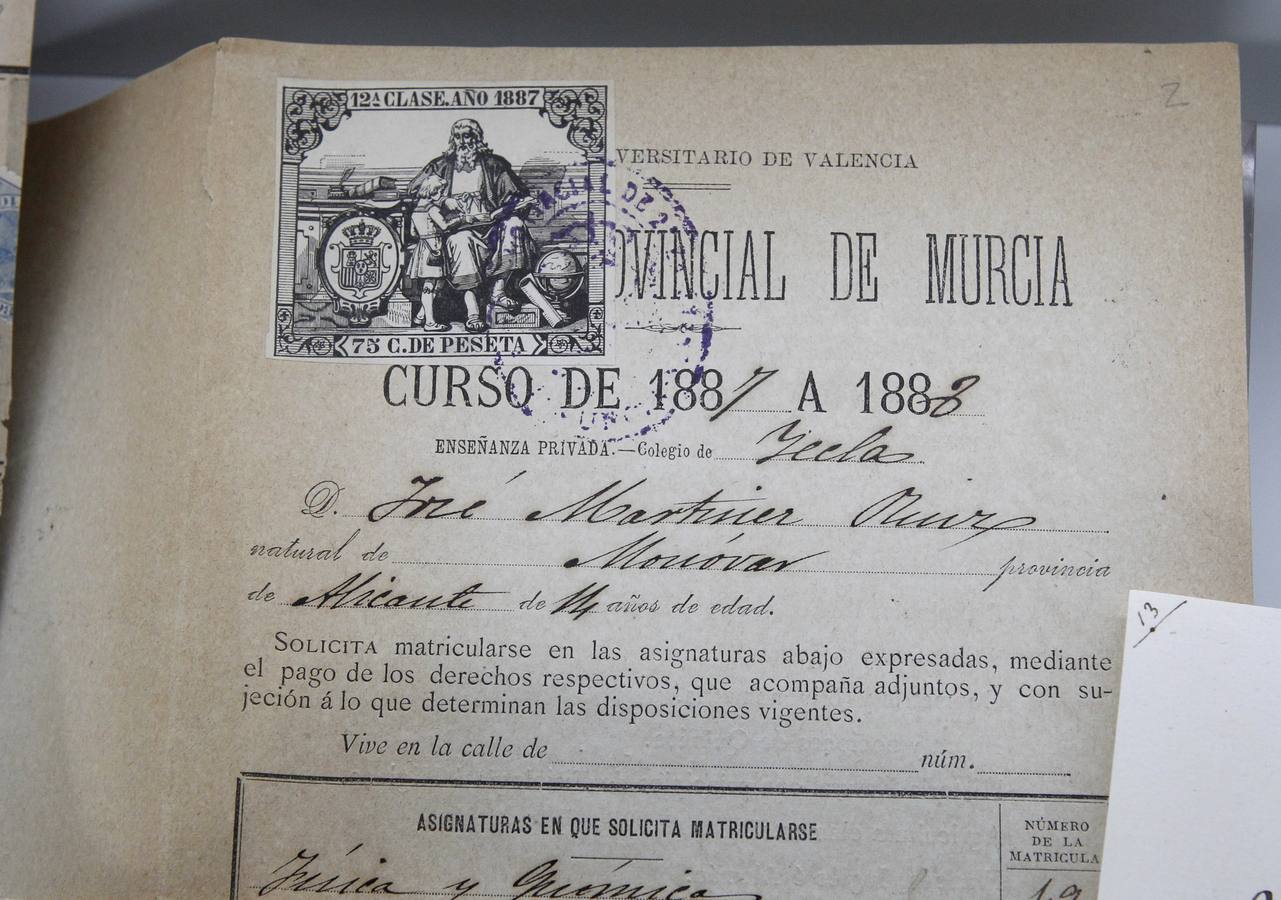 2
12ª CLASE. AÑO 1887
75 C. DE PESETA
VERSITARIO DE VALENCIA
OVINCIAL DE MURCIA
CURSO DE 1887 A 1888
ENSEÑANZA PRIVADA.—Colegio de Yecla
D. José Martinez Ruiz
natural de Monóvar provincia
de Alicante de 14 años de edad.
SOLICITA matricularse en las asignaturas abajo expresadas, mediante
el pago de los derechos respectivos, que acompaña adjuntos, y con su-
jeción á lo que determinan las disposiciones vigentes.
Vive en la calle de núm.
13
ASIGNATURAS EN QUE SOLICITA MATRICULARSE
NÚMERO
DE LA
MATRICULA
Física y Química
19